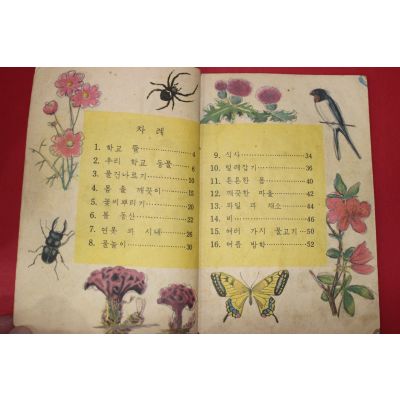 차 례
1. 학교 뜰 4
2. 우리 학교 동물 6
3. 물건나르기 10
4. 몸을 깨끗이 15
5. 꽃씨뿌리기 20
6. 봄 동산 22
7. 연못 과 시내 26
8. 물놀이 30
9. 식사 34
10. 벌레잡기 36
11. 튼튼한 몸 40
12. 깨끗한 마을 42
13. 과일 과 채소 44
14. 비 46
15. 여러 가지 물고기 50
16. 여름 방학 52